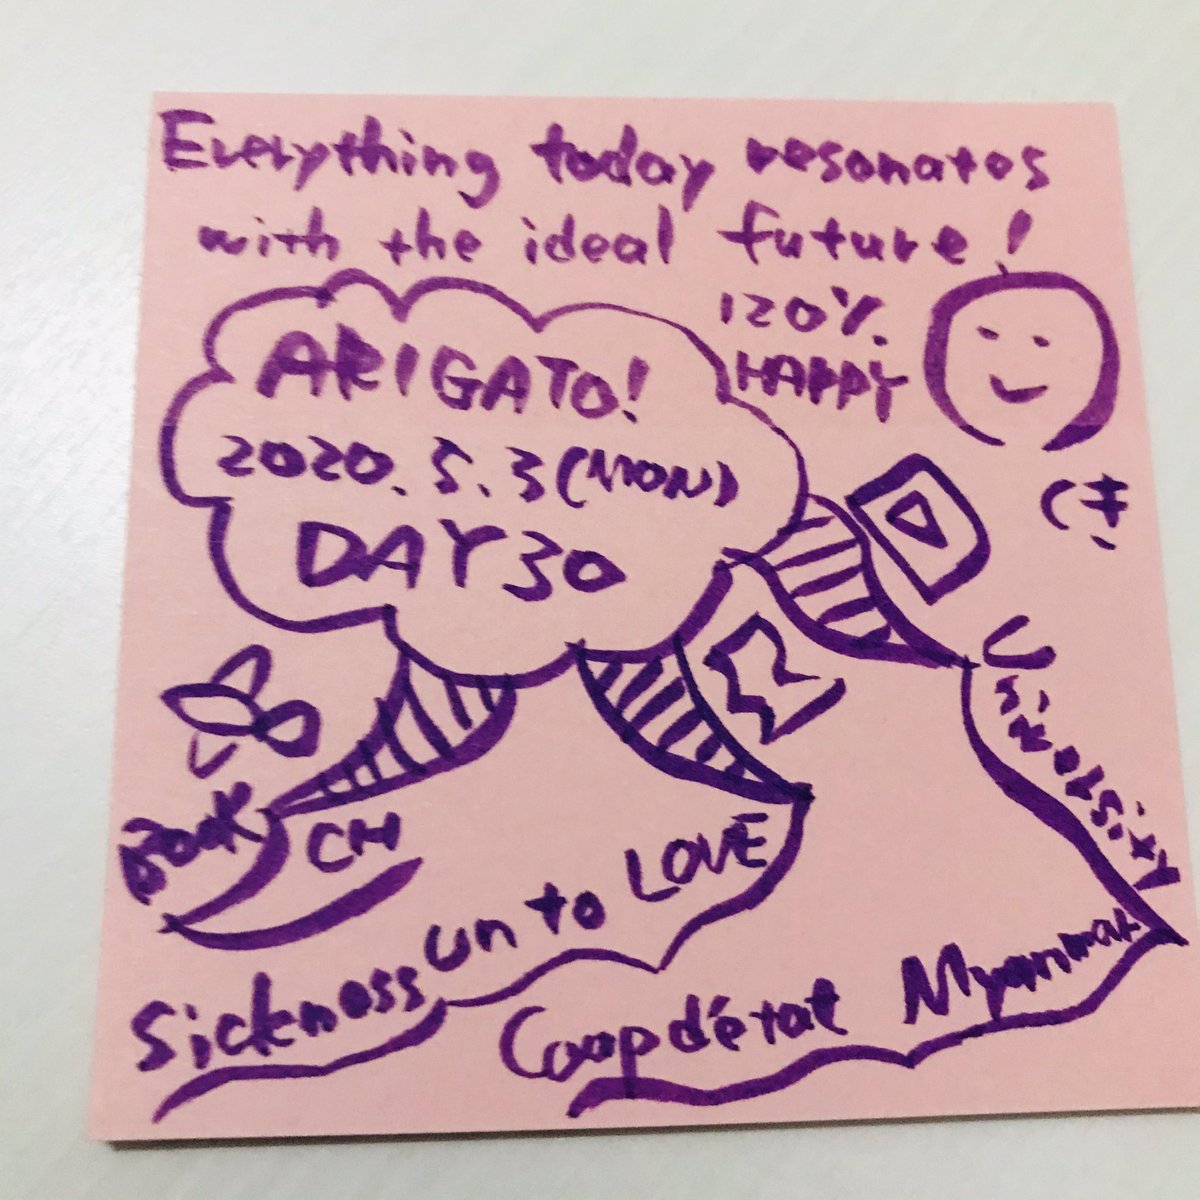 Everything today resonates
with the ideal future!
120%
HAPPY
ARIGATO!
2020.5.3(MON)
DAY30
Book
CH
Sickness un to LOVE
Coop d'état Myanmar